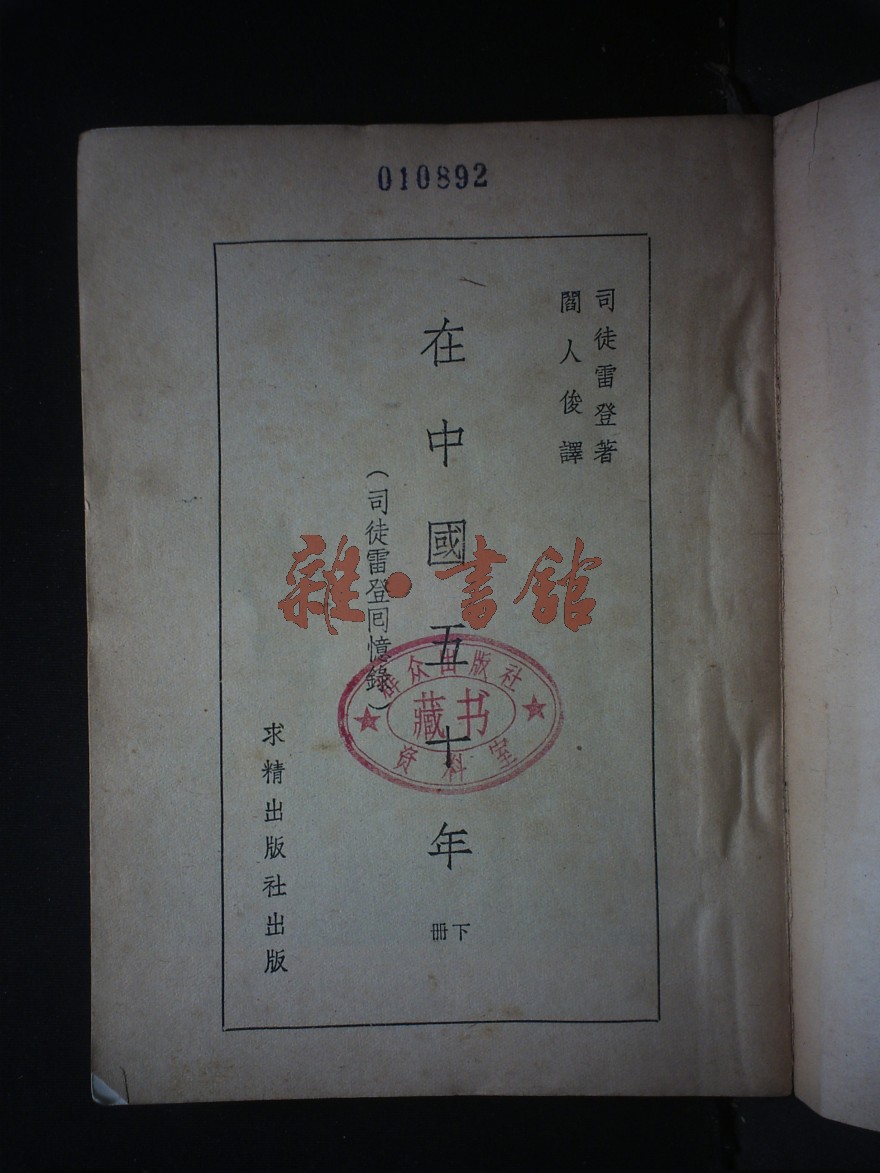 010892
司徒雷登著
閻人俊譯
在中國五十年
下册
(司徒雷登囘憶錄)
求精出版社出版
雜·書館
群众出版社
藏书
资料室